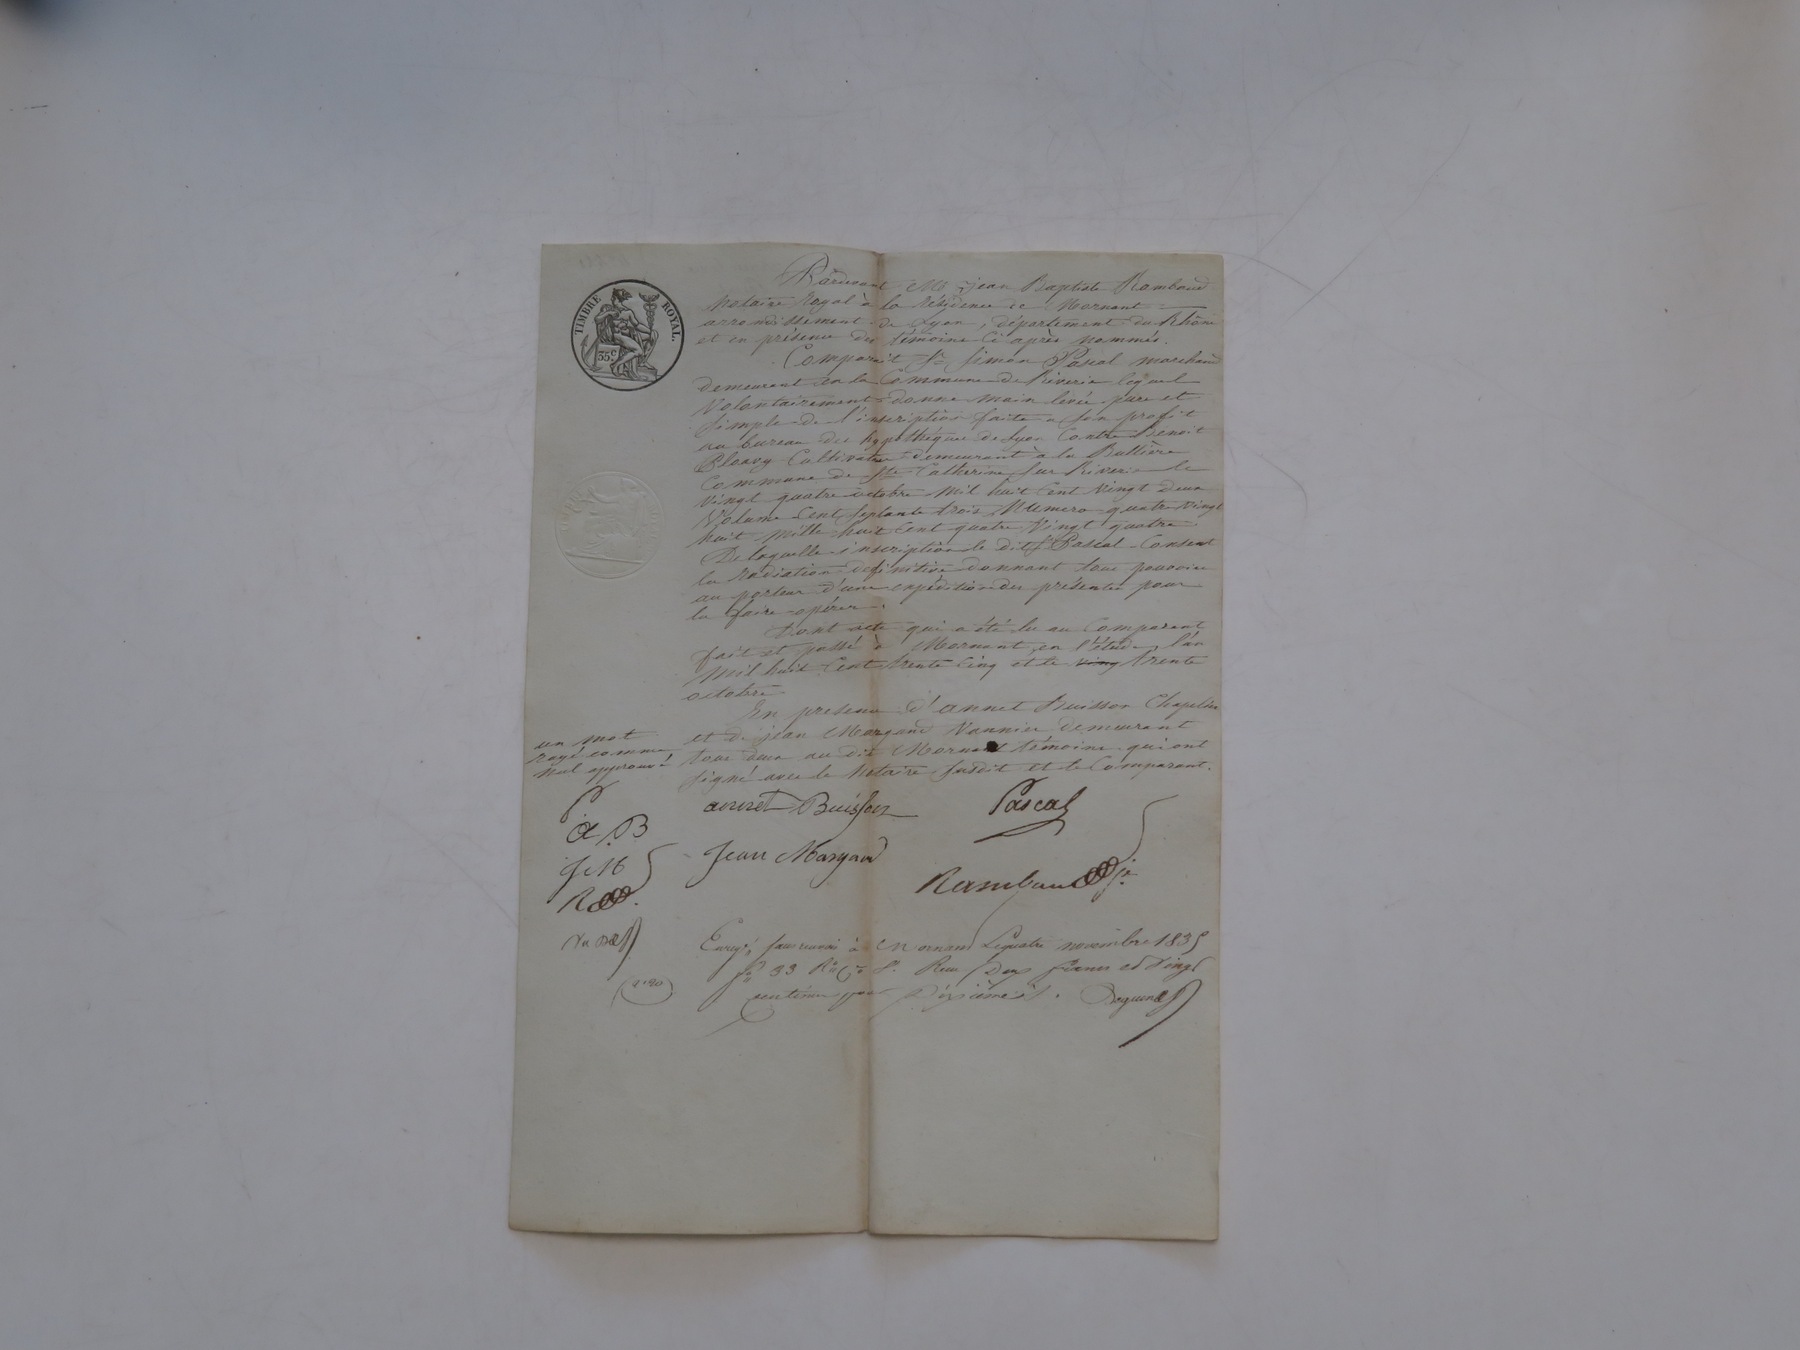 TIMBRE ROYAL.
35 c.
Pardevant Me jean Baptiste Rambaud
Notaire Royal à la Résidence de Mornant
arrondissement de Lyon, département du Rhône
et en présence des témoins Ci après nommés.
Comparait Sr Simon Pascal marchand
demeurant en la Commune de Riverie lequel
Volontairement donne main levée pure et
simple de l'inscription faite a son profit
au bureau des hypothéque de Lyon Contre Benoit
Cultivateur demeurant à la
Commune de Ste Catherine sur Riverie le
Vingt quatre octobre Mil huit Cent Vingt deux
Volume Cent septante trois Numero quatre Vingt
huit Mille huit Cent quatre Vingt quatre
De laquelle inscription le dit Sr Pascal Consent
la radiation définitive donnant tout pouvoir
au porteur d'une expédition des présentes pour
la faire opérer.
Dont acte qui a été lu au Comparant
fait et passé à Mornant en l'étude l'an
Mil huit Cent trente Cinq et le Ving trente
octobre
En presence d'annet Buisson Chapelier
et de jean Margand Vannier demeurant
tous deux au dit Mornant témoins qui ont
signé avec le Notaire susdit et le Comparant.
un mot
rayé comme
nul approuvé
P
a B
J M
R
annet Buisson
Pascal
Jean Margand
Rambaud
Enregé sans renvoi à Mornant Le quatre novembre 1835
fo 33 Ro Reçu Deux francs et Vingt
centimes pour Dixième